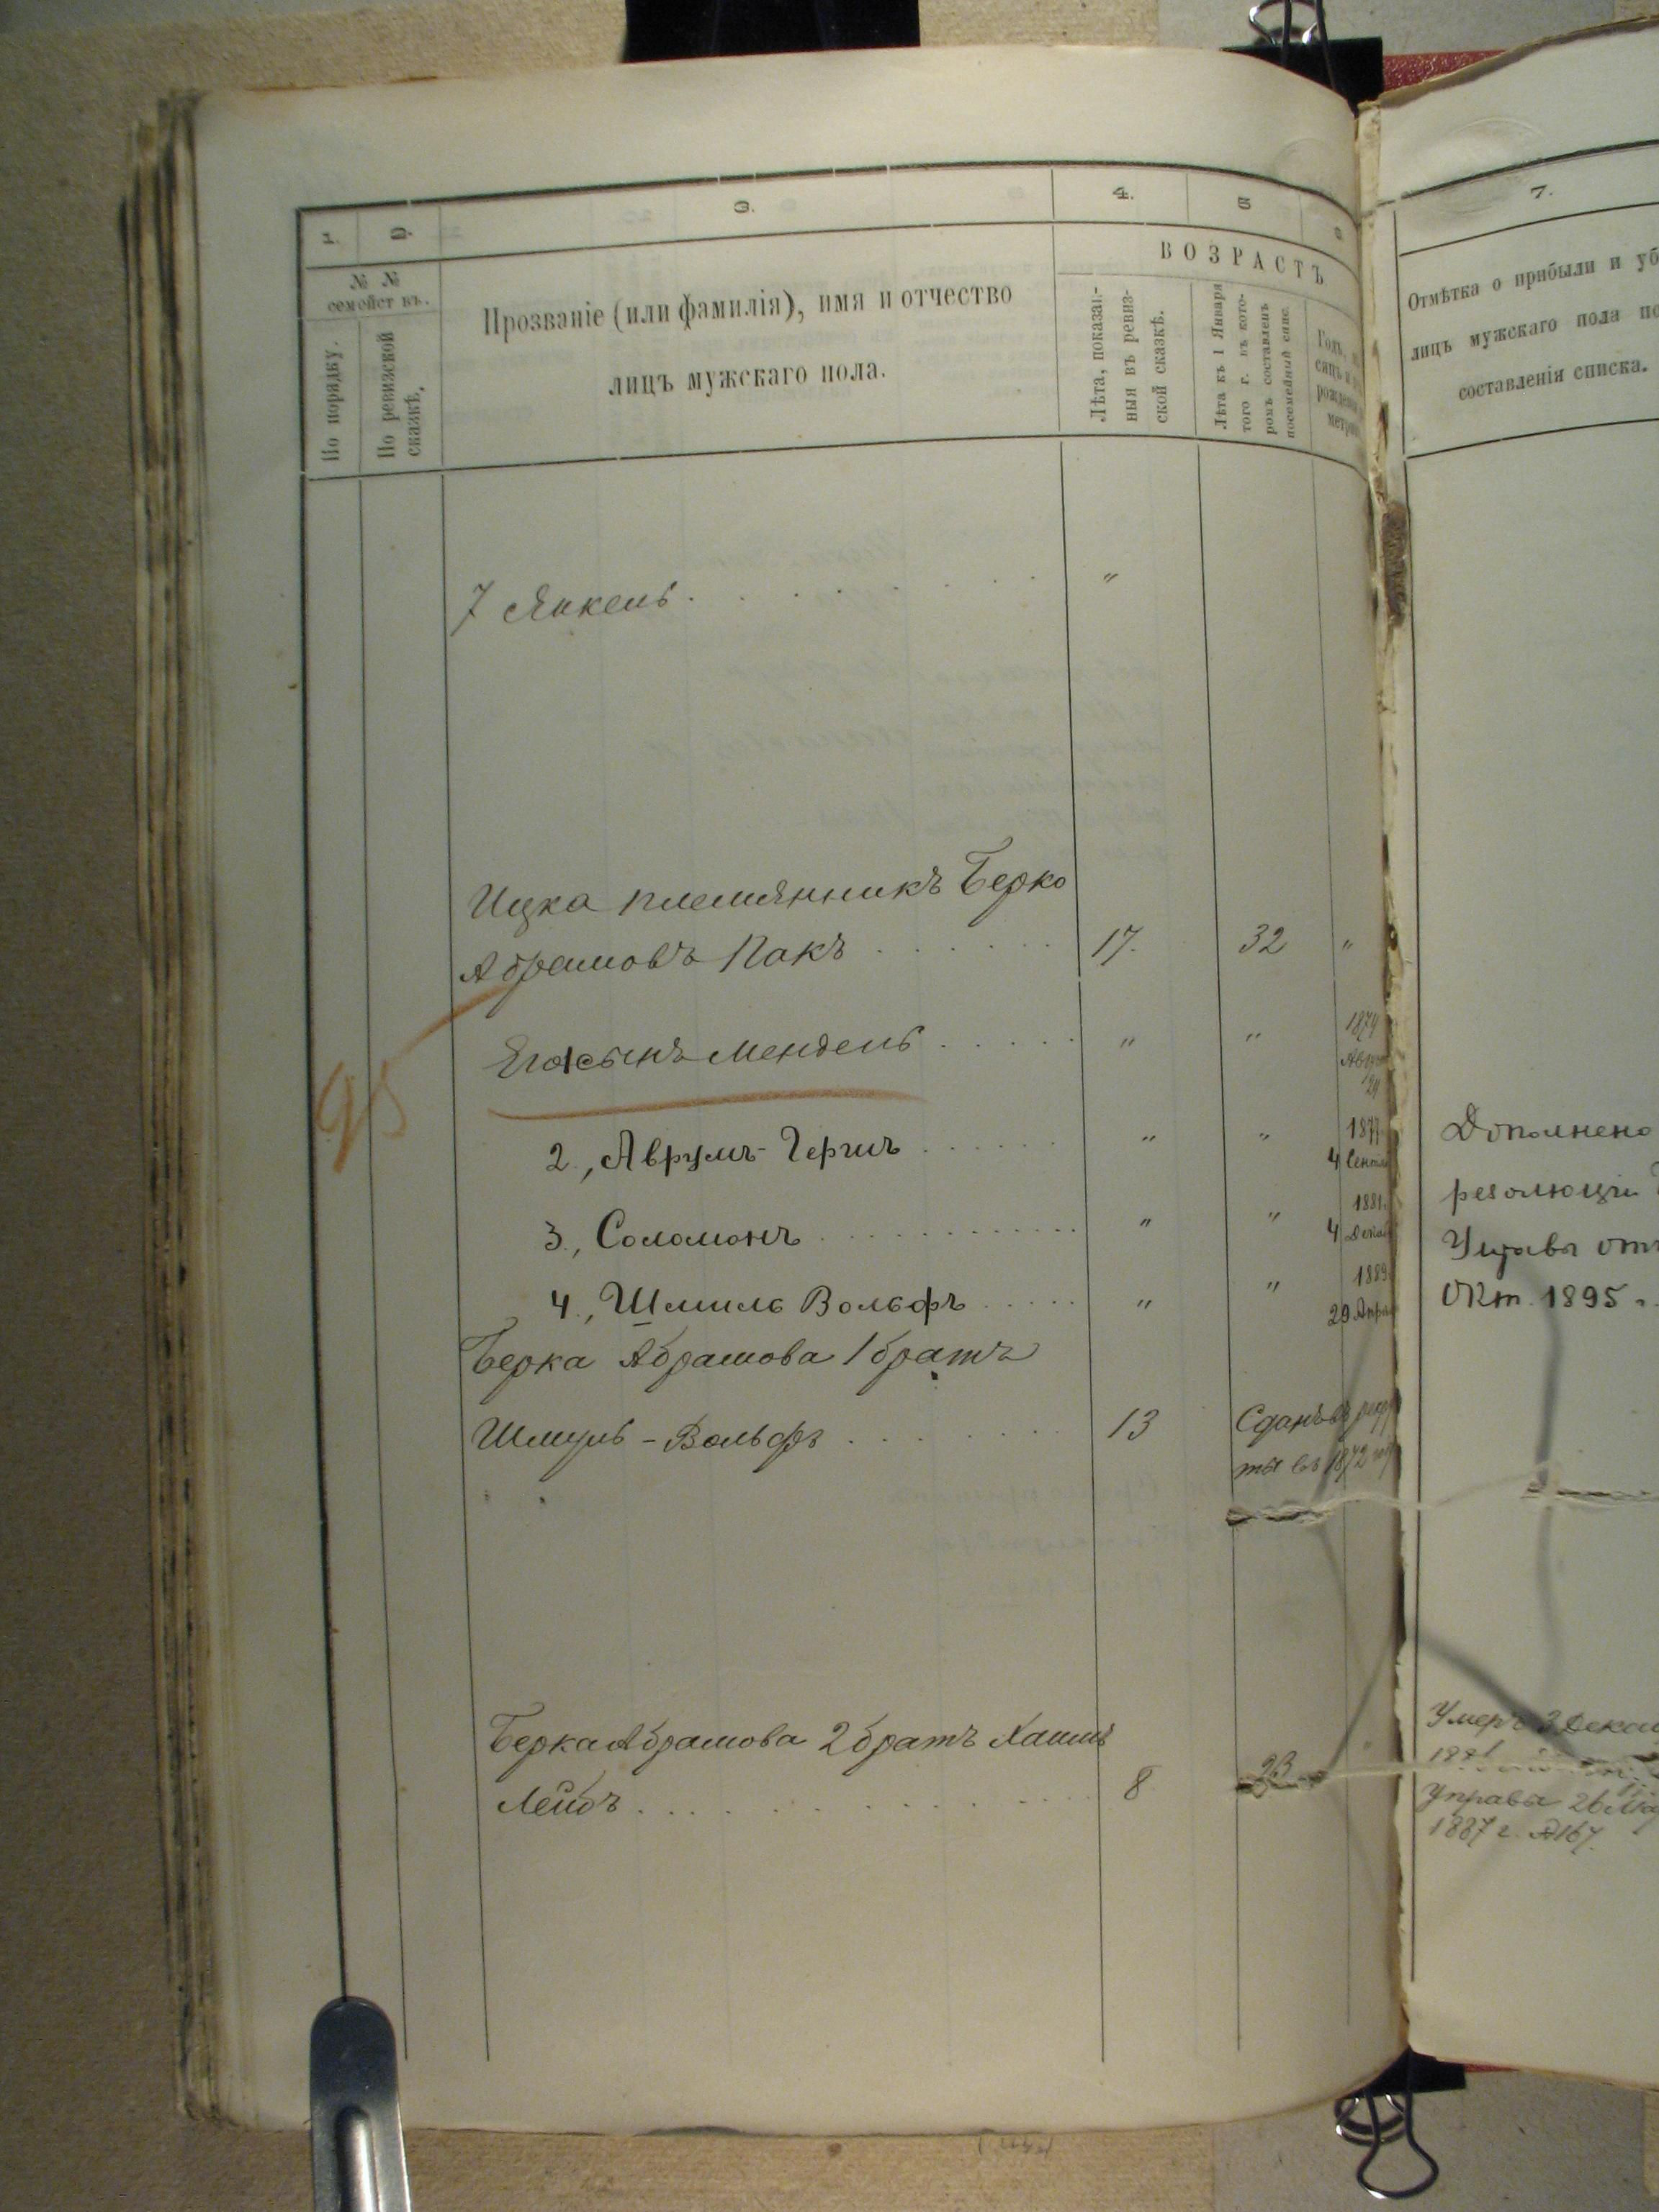 1. 2. 3. 4. 5 6 7.
№ №
семействъ.
По порядку.
По ревизской
сказкѣ.
Прозваніе (или фамилія), имя и отчество
лицъ мужскаго пола.
ВОЗРАСТЪ
Лѣта, показан-
ныя въ ревиз-
ской сказкѣ.
Лѣта къ 1 Января
того г. въ кото-
ромъ составленъ
посемейный спис.
Годъ,
сяцъ и
рожден
метри
Отмѣтка о прибыли и уб
лицъ мужскаго пола по
составленія списка.
7 Янкель . . . . . . . "
Ицка племянникъ Берко
Абрамовъ Пакъ . . . . . . 17. 32 "
95
Его 1 сынъ Мендель . . . . . " " 1874
Август
24
2., Аврумъ-Гершъ . . . . . " " 1877
4 Сентя
3., Соломонъ . . . . . . . . . . " " 1881.
4 Декаб
4., Шмиль Вольфъ . . . . . " " 1889
29 Апрѣ
Дополнено
резолюціи
Управы отъ
Окт. 1895 г.
Берка Абрамова 1 братъ
Шмуль-Вольфъ . . . . . . . 13 Сданъ въ рекру
ты въ 1872 год
Берка Абрамова 2 братъ Хаимъ
Лейбъ . . . . . . . . . . . . 8 23
Умеръ 3 Декаб
188
Управы 26 Ма
1887 г. №167.